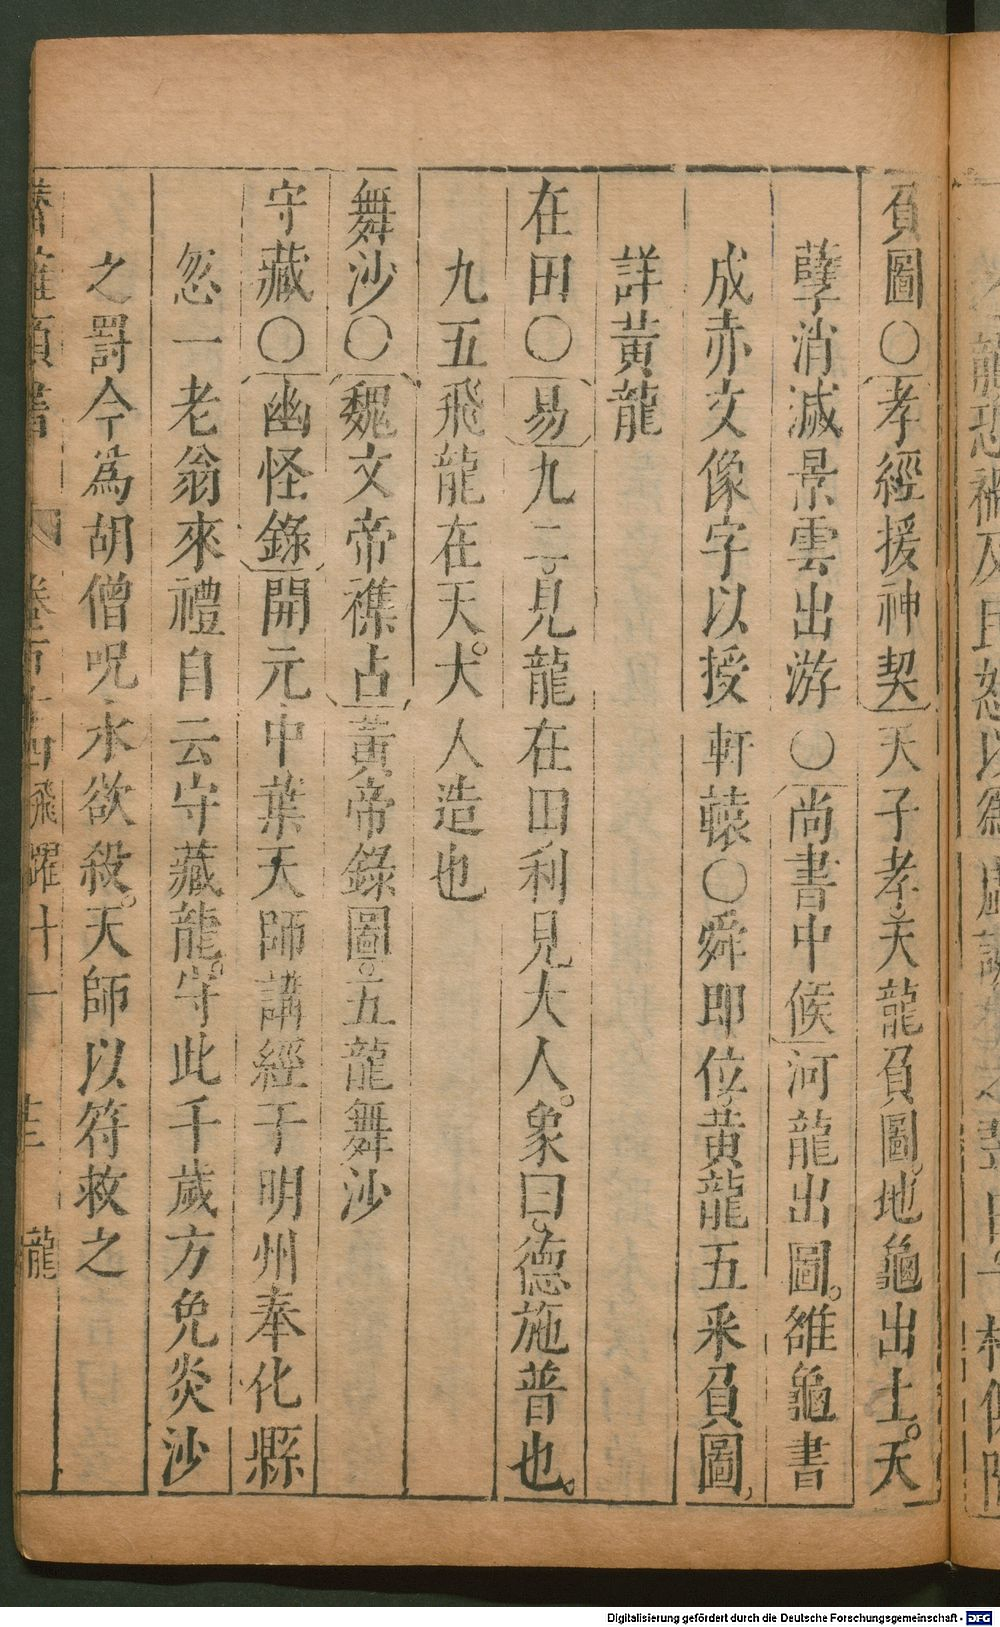 負圖〇孝經援神契天子孝天龍負圖地龜出土。天
孽消滅景雲出游〇尚書中候河龍出圖。雒龜書
成赤文像字以授軒轅〇舜即位黄龍五采負圖,
詳黄龍
在田〇易九二見龍在田利見大人。象曰。德施普也。
九五飛龍在天。大人造也
舞沙〇魏文帝襍占黃帝錄圖。五龍舞沙
守藏〇幽怪錄開元中葉天師講經于明州奉化縣
忽一老翁來禮自云守藏龍。守此千歲方免炎沙
之罰今爲胡僧呪水欲殺。天師以符救之
飛躍十一 龍
Digitalisierung gefördert durch die Deutsche Forschungsgemeinschaft - DFG